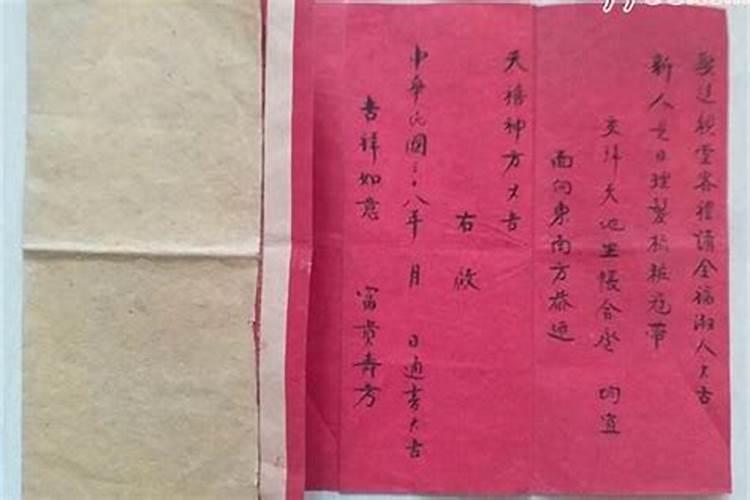 娶送親堂客裡請全福湘人大吉
新人是日理髮梳粧冠帶
交拜天地坐帳合巹 均宜
面向東南方恭迎
天禧神方大吉
右啟
中華民國三十八年 月 日通書大吉
吉祥如意 富貴壽方